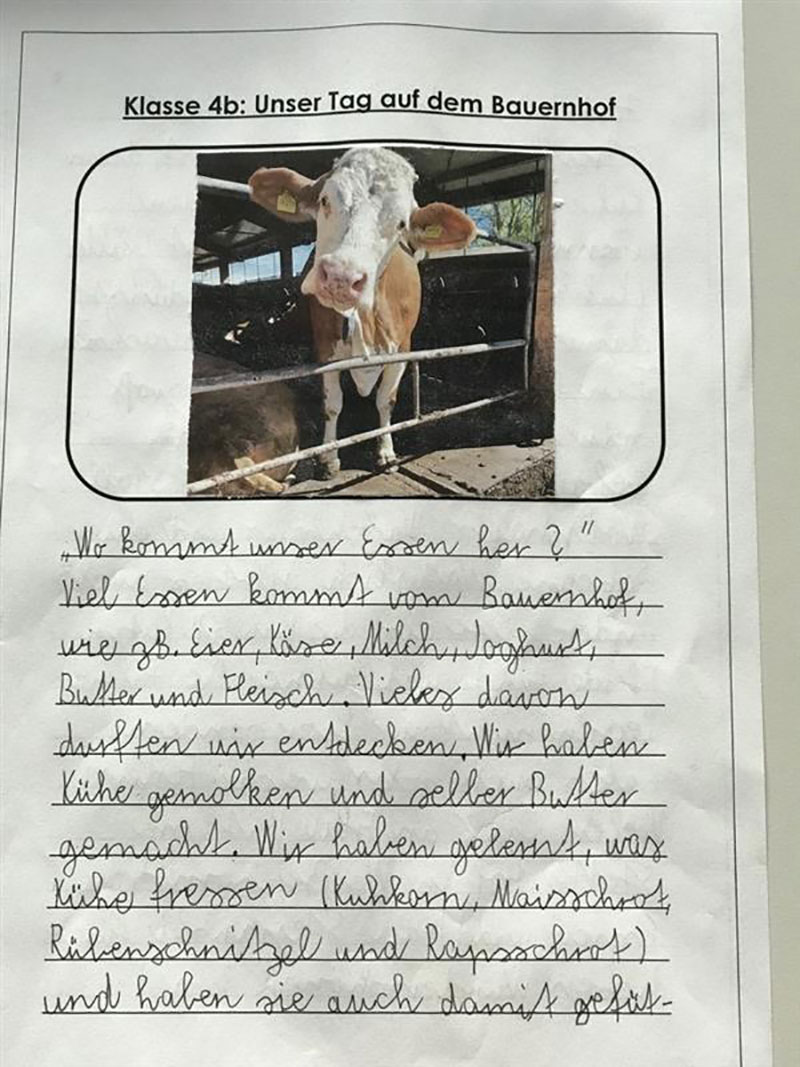 Klasse 4b: Unser Tag auf dem Bauernhof
„Wo kommt unser Essen her?"
Viel Essen kommt vom Bauernhof,
wie zB. Eier, Käse, Milch, Joghurt,
Butter und Fleisch. Vieles davon
durften wir entdecken. Wir haben
Kühe gemolken und selber Butter
gemacht. Wir haben gelernt, was
Kühe fressen (Kuhkorn, Maisschrot,
Rübenschnitzel und Rapsschrot)
und haben sie auch damit gefüt-